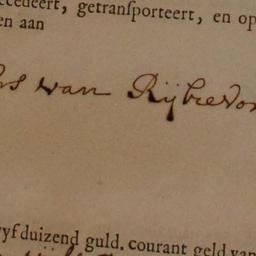 cedeert, getranſporteert, en op
en aan
rs van Rijbrevor
yf duizend guld. courant geld van